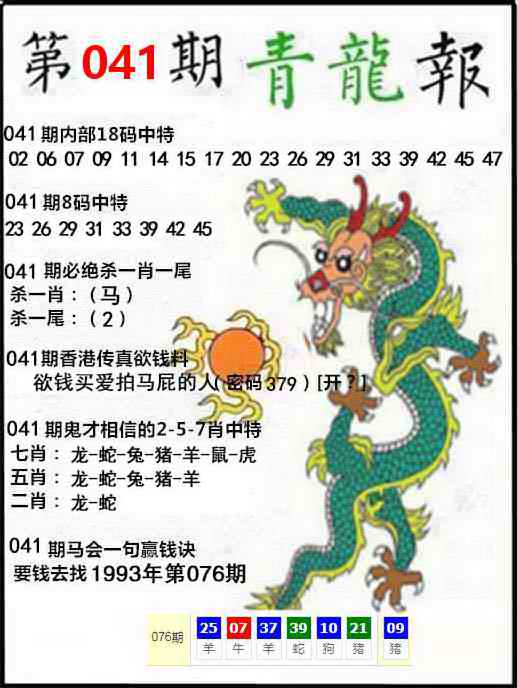 第041期青龍報
041期内部18码中特
02 06 07 09 11 14 15 17 20 23 26 29 31 33 39 42 45 47
041期8码中特
23 26 29 31 33 39 42 45
041 期必绝杀一肖一尾
杀一肖：（马）
杀一尾：（2）
041期香港传真欲钱料
欲钱买爱拍马屁的人(密码379)[开？]
041期鬼才相信的2-5-7肖中特
七肖：龙-蛇-兔-猪-羊-鼠-虎
五肖：龙-蛇-兔-猪-羊
二肖：龙-蛇
041期马会一句赢钱诀
要钱去找1993年第076期
076期 25 07 37 39 10 21 09
羊 牛 羊 蛇 狗 猪 猪